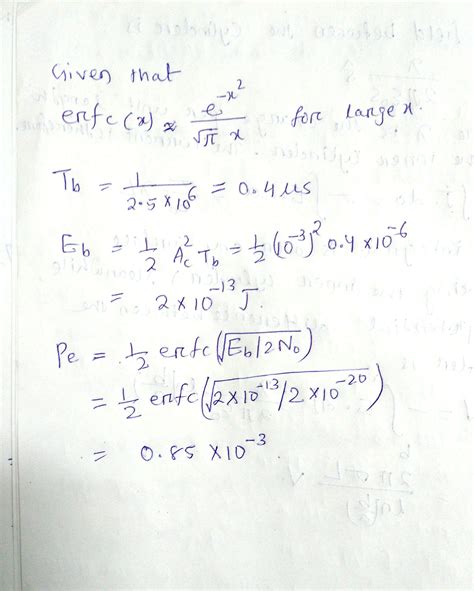 Given that
erfc(x) ≈ e^{-x^2} / (√π x) for large x.
Tb = 1 / (2.5 × 10^6) = 0.4 μs
Eb = 1/2 Ac^2 Tb = 1/2 (10^{-3})^2 0.4 × 10^{-6}
= 2 × 10^{-13} J.
Pe = 1/2 erfc(√(Eb/2No))
= 1/2 erfc(√(2×10^{-13}/2×10^{-20}))
= 0.85 × 10^{-3}